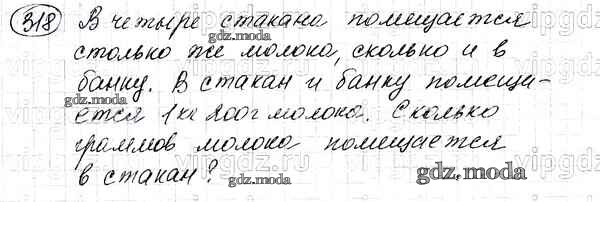 318 В четыре стакана помещается
столько же молока, сколько и в
банку. В стакан и банку помещи-
ется 1 кг 200г молока. Сколько
граммов молока помещается
в стакан?
gdz.moda
gdz.moda
gdz.moda
gdz.moda
gdz.moda
gdz.moda